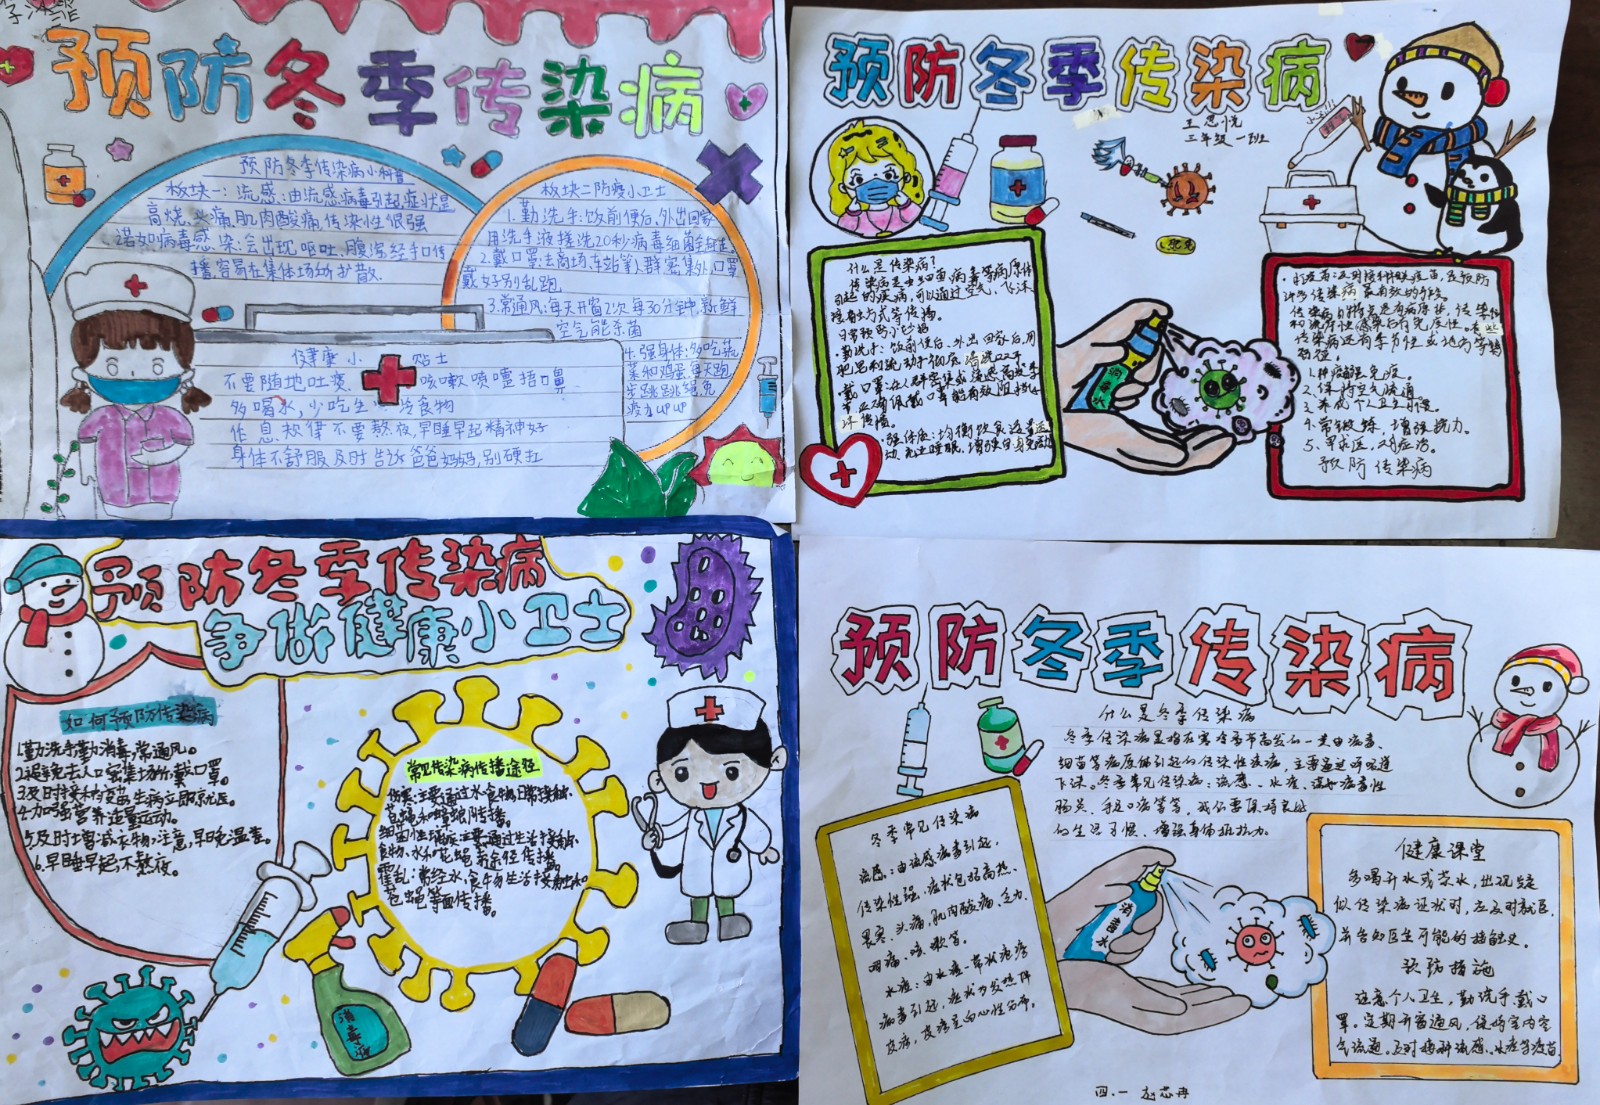 预防冬季传染病
预防冬季传染病小科普
板块一:流感:由流感病毒引起,症状是
高烧,头痛,肌肉酸痛,传染性很强
诺如病毒感染:会出现呕吐,腹泻,经手口传
播,容易在集体场所扩散
板块二防疫小卫士
1.勤洗手:饭前便后,外出回家
用洗手液搓洗20秒病毒细菌全赶走
2.戴口罩:去商场,车站等人群密集处,口罩
戴好别乱跑
3.常通风:每天开窗2次每30分钟,新鲜
空气能杀菌
4.强身体:多吃蔬
菜和鸡蛋每天跑
步跳跳绳免
疫力up up
健康小贴士
不要随地吐痰 咳嗽喷嚏捂口鼻
多喝水,少吃生冷食物
作息规律不要熬夜,早睡早起精神好
身体不舒服及时告诉爸爸妈妈,别硬扛
预防冬季传染病
王思悦
三年级一班
什么是传染病?
传染病是由细菌,病毒等病原体
引起的疾病,可以通过空气、飞沫
接触方式等传播。
日常预防小妙招
·勤洗手:饭前便后、外出回家后,用
环传播。
·强体质:均衡饮食适量运
动,充足睡眠,增强自身免疫力
传染病的特点是有病原体,传染性
和流行性感染后有免疫性。有些
传染病还有季节性或地方等特
征。
1.种疫苗强免疫。
2.保持空气流通。
3.养成个人卫生习惯。
4.常锻炼,增强抗力。
5.早求医,对症治。
预防传染病
消毒水
预防冬季传染病
争做健康小卫士
如何预防传染病
1.勤洗手勤消毒,常通风。
2.避免去人口密集场所,戴口罩。
3.及时接种疫苗生病立即就医。
4.加强营养适量运动。
5.及时增减衣物,注意,早晚温差。
6.早睡早起不熬夜。
常见传染病传播途径
伤寒:主要通过水,食物,日常接触,
苍蝇和蟑螂传播。
细菌性痢疾:主要通过生活接触,
食物、水和苍蝇等途径传播。
霍乱:常经水,食物生活接触和
苍蝇等面传播。
消毒液
预防冬季传染病
什么是冬季传染病
冬季传染病是指在寒冷季节高发的一类由病毒、
细菌等病原体引起的传染性疾病,主要通过呼吸道
飞沫。冬季常见传染病:流感、水痘、诺如病毒性
肠炎、手足口病等等,我们要保持良好
的生活习惯、增强身体抵抗力。
冬季常见传染病
流感:由流感病毒引起,
传染性强,症状包括高热、
畏寒、头痛、肌肉酸痛、乏力、
咽痛、咳嗽等。
水痘:由水痘-带状疱疹
病毒引起,症状为发热伴
皮疹,皮疹呈向心性分布。
消毒水
健康课堂
多喝开水或茶水,出现疑
似传染病症状时,应及时就医,
并告知医生可能的接触史。
预防措施
注意个人卫生,勤洗手、戴口
罩。定期开窗通风,保持室内空
气流通。及时接种流感、水痘等疫苗,
四.一 赵芯冉